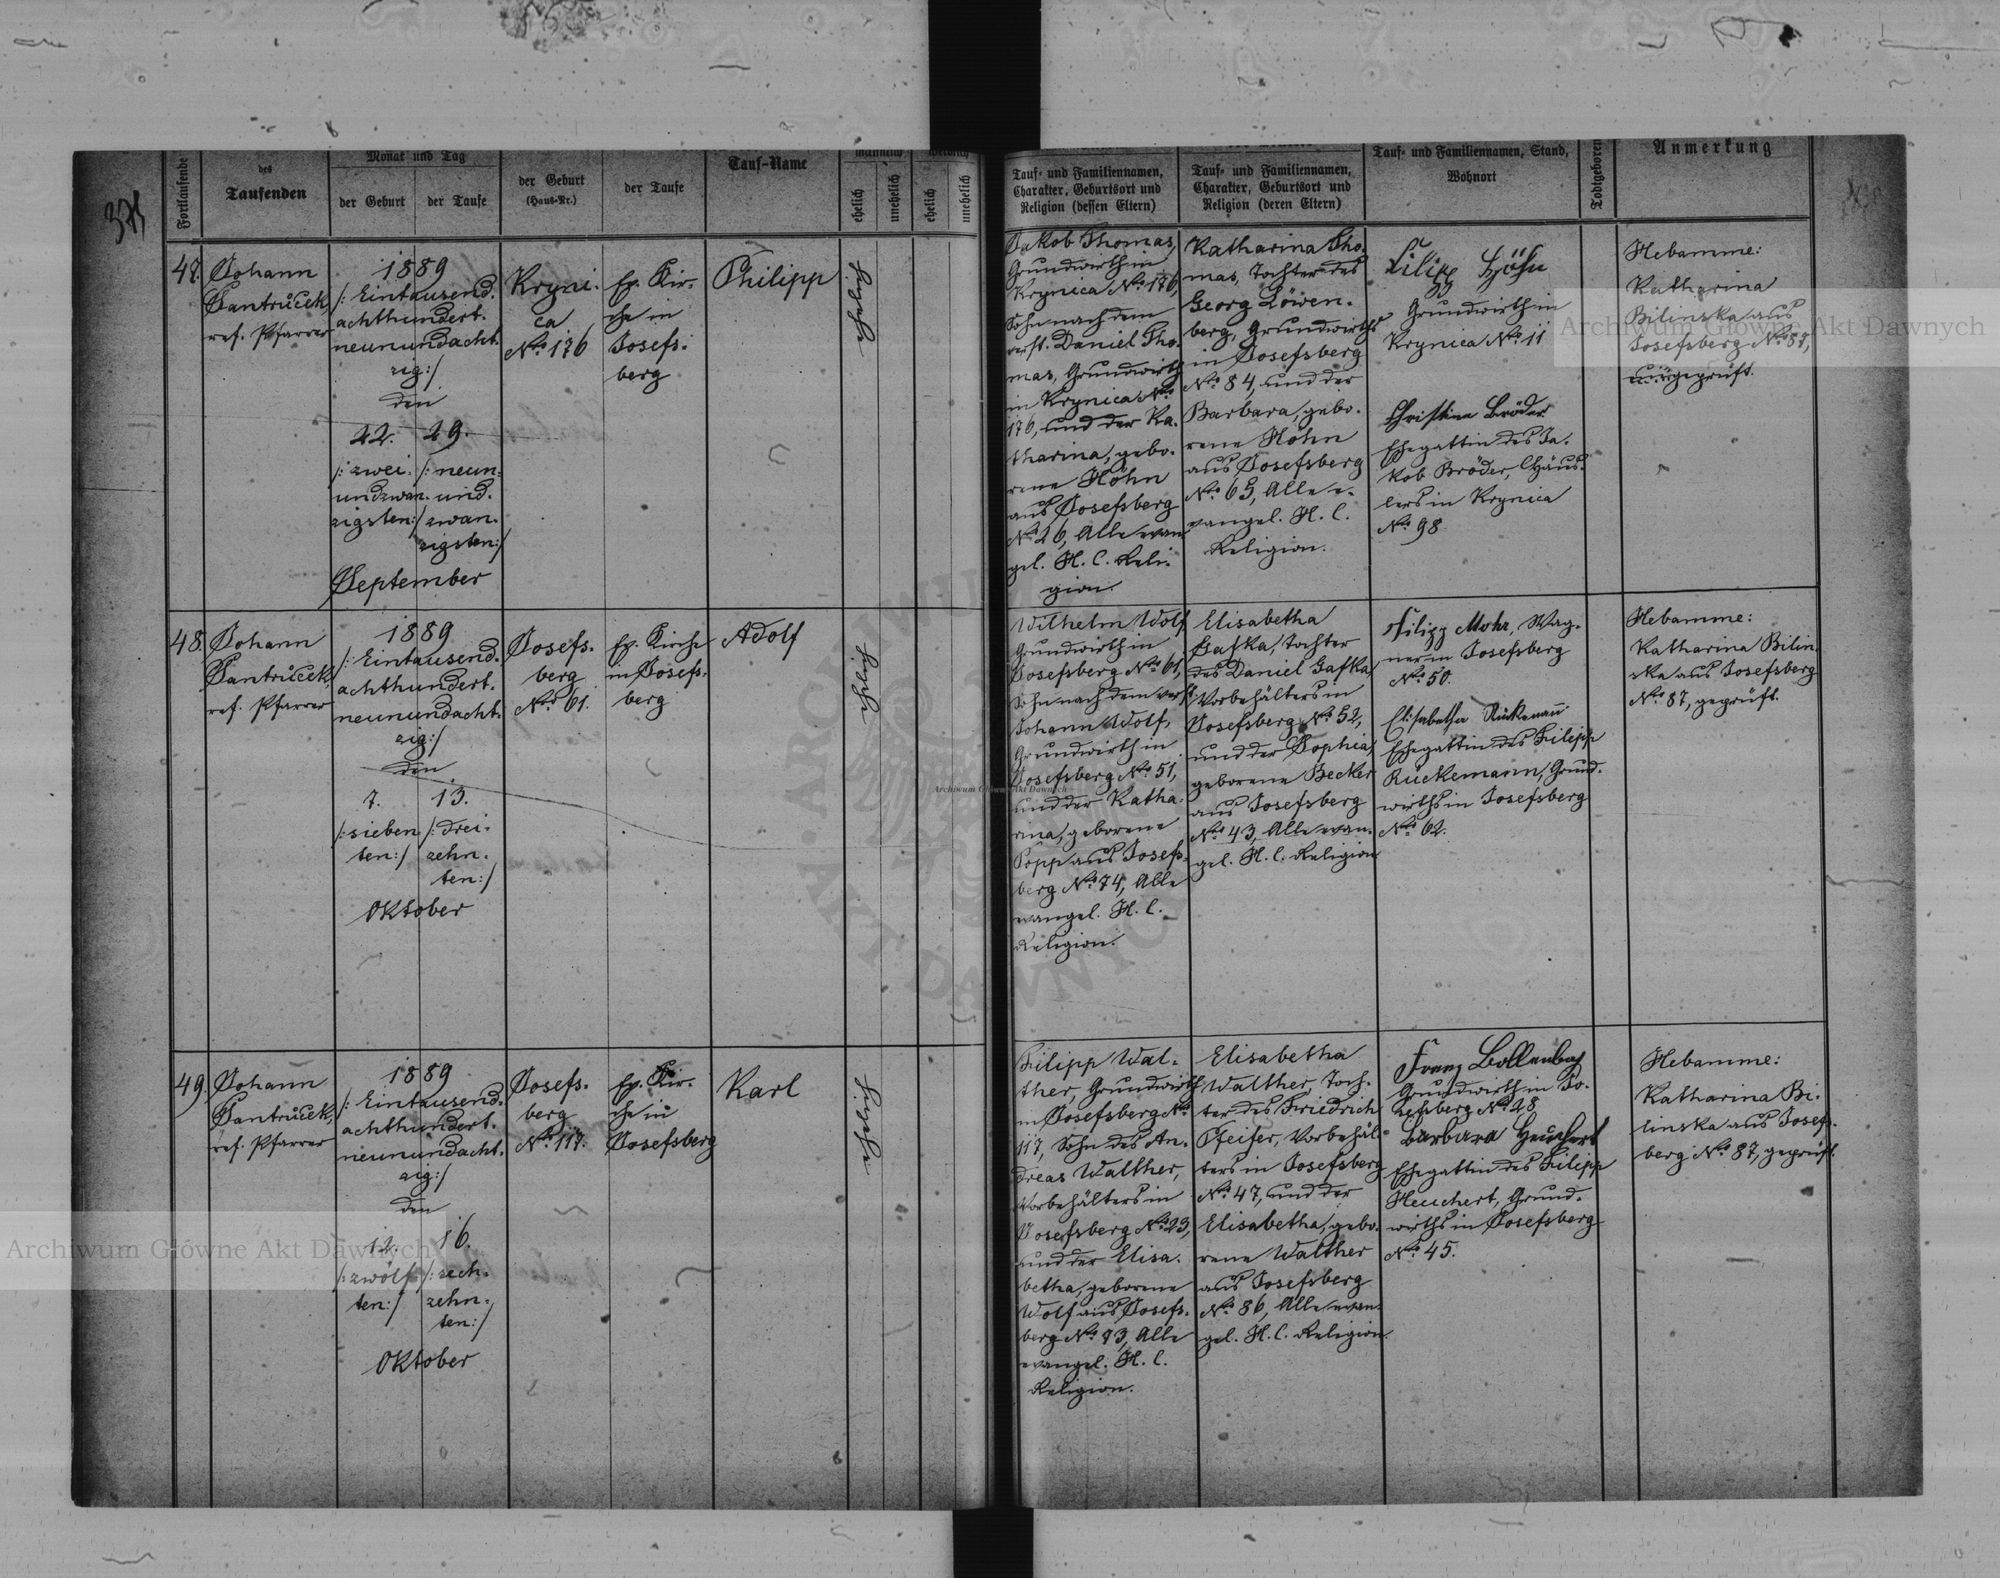 375
Fortlaufende
des
Taufenden
Monat und Tag
der Geburt
der Taufe
der Geburt
(Haus-Nr.)
der Taufe
Tauf-Name
männlich
ehelich
unehelich
weiblich
ehelich
unehelich
47.
Johann
Jantrůček,
ref. Pfarrer
1889
/: Eintausend-
achthundert-
neunundacht-
zig:/
den
22. 29.
/: zwei- /: neun-
undzwan- und-
zigsten:/ zwan-
zigsten:/
September
Kryni-
ca
No. 176
Ev. Kir-
che in
Josefs-
berg
Philipp
48.
Johann
Jantrůček,
ref. Pfarrer
1889
/: Eintausend-
achthundert-
neunundacht-
zig:/
den
7. 13.
/: sieben /: drei-
ten:/ zehn-
ten:/
Oktober
Josefs-
berg
No. 61.
Ev. Kirche
in Josefs-
berg
Adolf
49.
Johann
Jantrůček,
ref. Pfarrer
1889
/: Eintausend-
achthundert-
neunundacht-
zig:/
den
12. 16.
/: zwölf- /: sech-
ten:/ zehn-
ten:/
Oktober
Josefs-
berg
No. 117.
Ev. Kir-
che in
Josefsberg
Karl
Tauf- und Familiennamen,
Charakter, Geburtsort und
Religion (dessen Eltern)
Tauf- und Familiennamen,
Charakter, Geburtsort und
Religion (deren Eltern)
Tauf- und Familiennamen, Stand,
Wohnort
Todtgeboren
Anmerkung
Jakob Thomas,
Grundwirth in
Krynica No. 176,
Sohn nach dem
verst. Daniel Tho-
mas, Grundwirth
in Krynica No.
176, und der Ka-
tharina, gebo-
rene Höhn
aus Josefsberg
No. 26, Alle evan-
gel. H. C. Reli-
gion.
Katharina Tho-
mas, Tochter des
Georg Löwen-
berg, Grundwirths
in Josefsberg
No. 84, und der
Barbara, gebo-
rene Höhn
aus Josefsberg
No. 65, Alle e-
vangel. H. C.
Religion.
Filipp Höhn
Grundwirth in
Krynica No. 11
Christine Bröder
Ehegattin des Ja-
kob Bröder, Häus-
lers in Krynica
No. 98.
Hebamme:
Katharina
Bilinska aus
Josefsberg No. 87,
geprüft.
Wilhelm Wolf
Grundwirth in
Josefsberg No. 61,
Sohn nach dem verst.
Johann Wolf,
Grundwirth in
Josefsberg No. 51,
und der Katha-
rina, geborene
Popp aus Josefs-
berg No. 74, Alle
evangel. H. C.
Religion.
Elisabetha
Gafka, Tochter
des Daniel Gafka,
Vorbehälters in
Josefsberg No. 52,
und der Sophia,
geborene Becker
aus Josefsberg
No. 43, Alle evan-
gel. H. C. Religion
Filipp Mohr, Wag-
ner in Josefsberg
No. 50.
Elisabetha Rückemann
Ehegattin des Filipp
Rückemann, Grund-
wirths in Josefsberg
No. 62.
Hebamme:
Katharina Bilin-
ska aus Josefsberg
No. 87, geprüft.
Filipp Wal-
ther, Grundwirth
in Josefsberg No.
117, Sohn des An-
dreas Walther,
Vorbehälters in
Josefsberg No. 23,
und der Elisa-
betha, geborene
Wolf aus Josefs-
berg No. 83, Alle
evangel. H. C.
Religion.
Elisabetha
Walther, Toch-
ter des Friedrich
Pfeifer, Vorbehäl-
ters in Josefsberg
No. 47, und der
Elisabetha, gebo-
rene Walther
aus Josefsberg
No. 86, Alle evan-
gel. H. C. Religion.
Franz Bollenbach
Grundwirth in Jo-
sefsberg No. 28
Barbara Heuchert
Ehegattin des Filipp
Heuchert, Grund-
wirths in Josefsberg
No. 45.
Hebamme:
Katharina Bi-
linska aus Josefs-
berg No. 87, geprüft.
Archiwum Główne Akt Dawnych
Archiwum Główne Akt Dawnych
Archiwum Główne Akt Dawnych